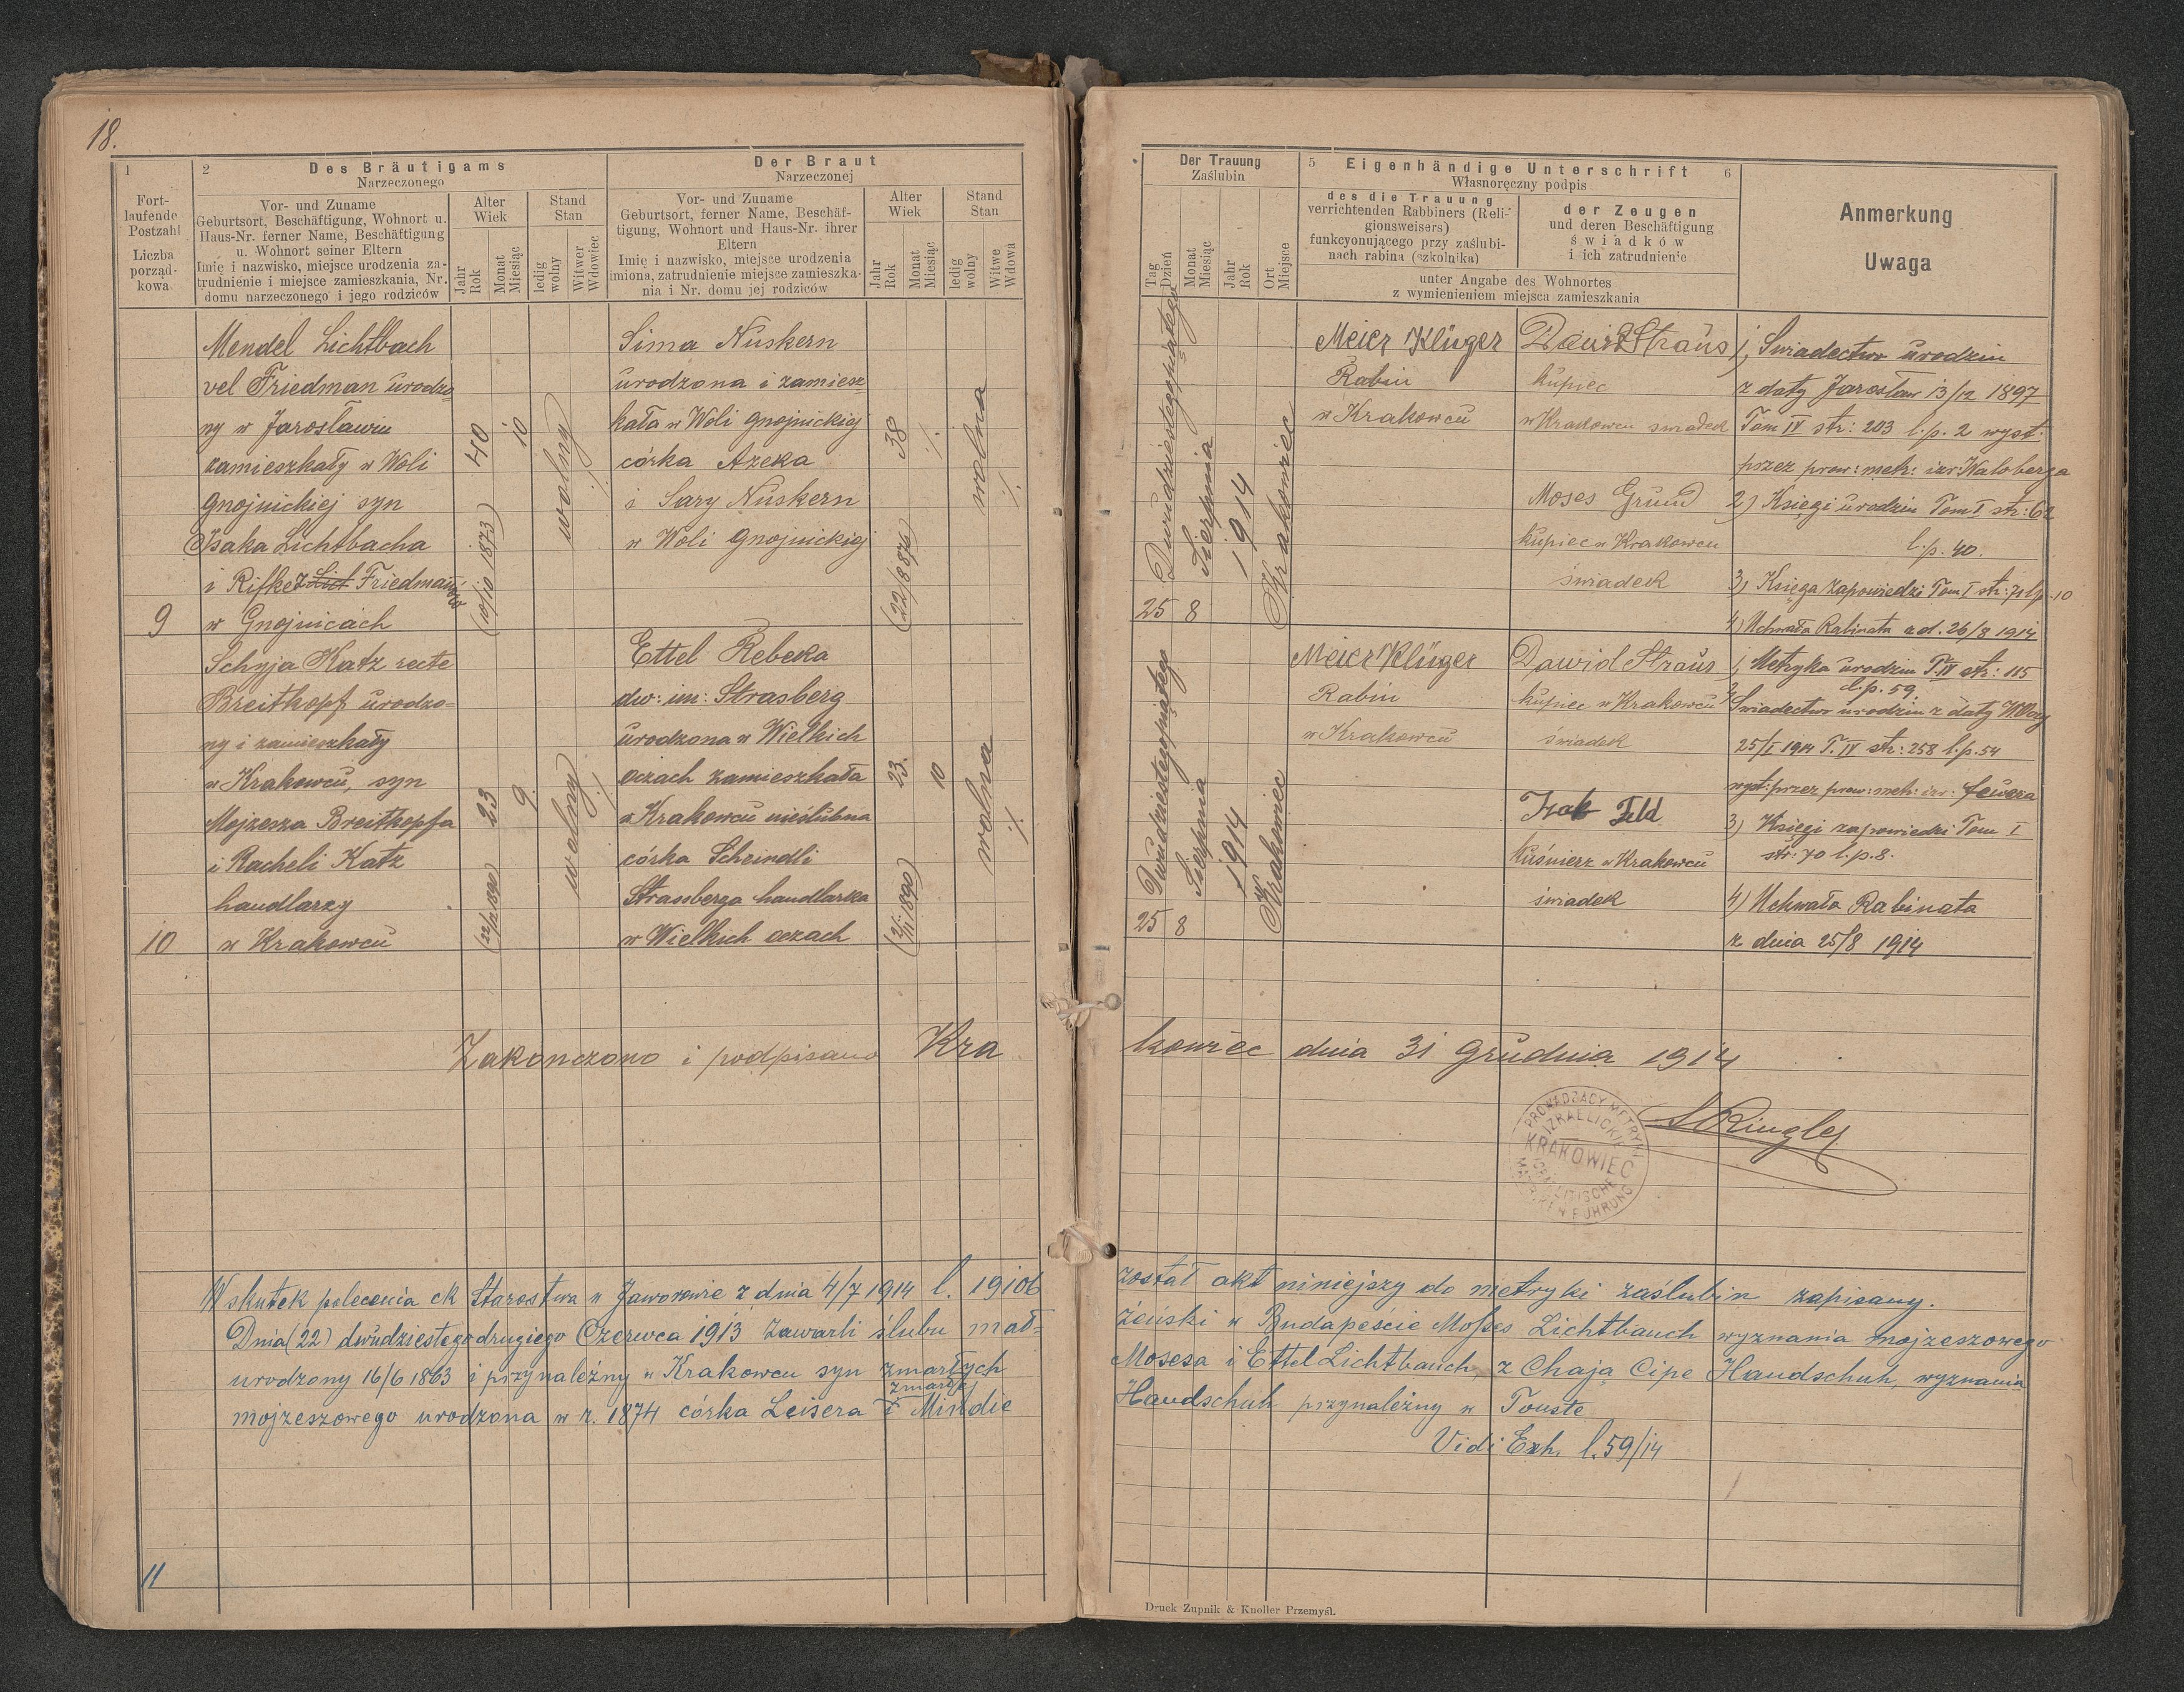 18.
1
Fort-
laufende
Postzahl
Liczba
porząd-
kowa
2
Des Bräutigams
Narzeczonego
Vor- und Zuname
Geburtsort, Beschäftigung, Wohnort u.
Haus-Nr. ferner Name, Beschäftigung
u. Wohnort seiner Eltern
Imię i nazwisko, miejsce urodzenia za-
trudnienie i miejsce zamieszkania, Nr.
domu narzeczonego i jego rodziców
Alter
Wiek
Jahr
Rok
Monat
Miesiąc
Stand
Stan
ledig
wolny
Witwer
Wdowiec
Der Braut
Narzeczonej
Vor- und Zuname
Geburtsort, ferner Name, Beschäf-
tigung, Wohnort und Haus-Nr. ihrer
Eltern
Imię i nazwisko, miejsce urodzenia
imiona, zatrudnienie miejsce zamieszka-
nia i Nr. domu jej rodziców
Alter
Wiek
Jahr
Rok
Monat
Miesiąc
Stand
Stan
ledig
wolny
Witwe
Wdowa
Der Trauung
Zaślubin
Tag
Dzień
Monat
Miesiąc
Jahr
Rok
Ort
Miejsce
5
Eigenhändige Unterschrift
6
Własnoręczny podpis
des die Trauung
verrichtenden Rabbiners (Reli-
gionsweisers)
funkcyonującego przy zaślubi-
nach rabina (szkolnika)
der Zeugen
und deren Beschäftigung
świadków
i ich zatrudnienie
unter Angabe des Wohnortes
z wymienieniem miejsca zamieszkania
Anmerkung
Uwaga
9
Mendel Lichtbach
vel Friedman urodzo=
ny w Jarosławiu
zamieszkały w Woli
gnojnickiej syn
Isaka Lichtbacha
i Rifke z Lich Friedmanów
w Gnojnicach
40
(10/10 1873)
10
wolny
./.
Sima Nuskern
urodzona i zamiesz
kała w Woli gnojnickiej
córka Azeka
i Sary Nuskern
w Woli gnojnickiej
38
(22/8 876)
./.
wolna
./.
Dwudziestegopiątego
25
Sierpnia
8
1914
Krakowiec
Meier Klüger
Rabin
w Krakowcu
Dawid Straus
kupiec
w Krakowcu świadek
Moses Grund
kupiec w Krakowcu
świadek
1, Swiadectwo urodzin
z daty Jarosław 13/12 1897
Tom IV str: 203 l.p. 2 wyst.
przez prow: metr: izr:
2) Księgi urodzin Tom I str: 62
l.p. 40.
3) Księga zapowiedzi Tom I str: 71 l.p. 10
4) Uchwała Rabinata z d. 26/8 1914
10
Schyja Katz recte
Breitkopf urodzo=
ny i zamieszkały
w Krakowcu, syn
Mojzesza Breitkopfa
i Racheli Katz
handlarzy
w Krakowcu
23
(22/12 1890)
9
wolny
./.
Ettel Rebeka
dw: im: Strasberg
urodzona w Wielkich
oczach zamieszkała
w Krakowcu nieślubna
córka Scheindli
Strassberga handlarka
w Wielkich oczach
23.
10
wolna
./.
Dwudziestegopiątego
25
Sierpnia
8
1914
Krakowiec
Meier Klüger
Rabin
w Krakowcu
Dawid Straus
kupiec w Krakowcu
świadek
Izak Feld
kuśnierz w Krakowcu
świadek
1, Metryka urodzin T. IV str: 115
l.p. 59.
2, Swiadectwo urodzin z daty W. Oczy
25/I 1914 T. IV str: 258 l.p. 54
wyst: przez prow: metr: izr:
3) Księgi zapowiedzi Tom I
str: 70 l.p. 8.
4) Uchwała Rabinata
z dnia 25/8 1914
Zakończono i podpisano Krakowiec dnia 31 Grudnia 1914
S Ringler
PROWADZĄCY METRYKI
IZRAELICKIE
KRAKOWIEC
ISRAELITISCHE
MATRIKENFÜHRUNG
11
Wskutek polecenia ck Starostwa w Jaworowie z dnia 4/7 1914 l. 19106 został akt niniejszy do metryki zaślubin zapisany.
Dnia (22) dwudziestego drugiego Czerwca 1913 zawarli ślubu mał= żeński w Budapeście Mosses Lichtbauch wyznania mojzeszowego
urodzony 16/6 1863 i przynależny w Krakowcu syn zmarłych Mosesa i Ettel Lichtbauch z Chają Cipe Handschuh, wyznania
zmarłej
mojzeszowego urodzona w r. 1874 córka Leisera i Mindie Handschuh przynależny w Touste
Vidi Exh. l. 59/14
Druck Zupnik & Knoller Przemyśl.